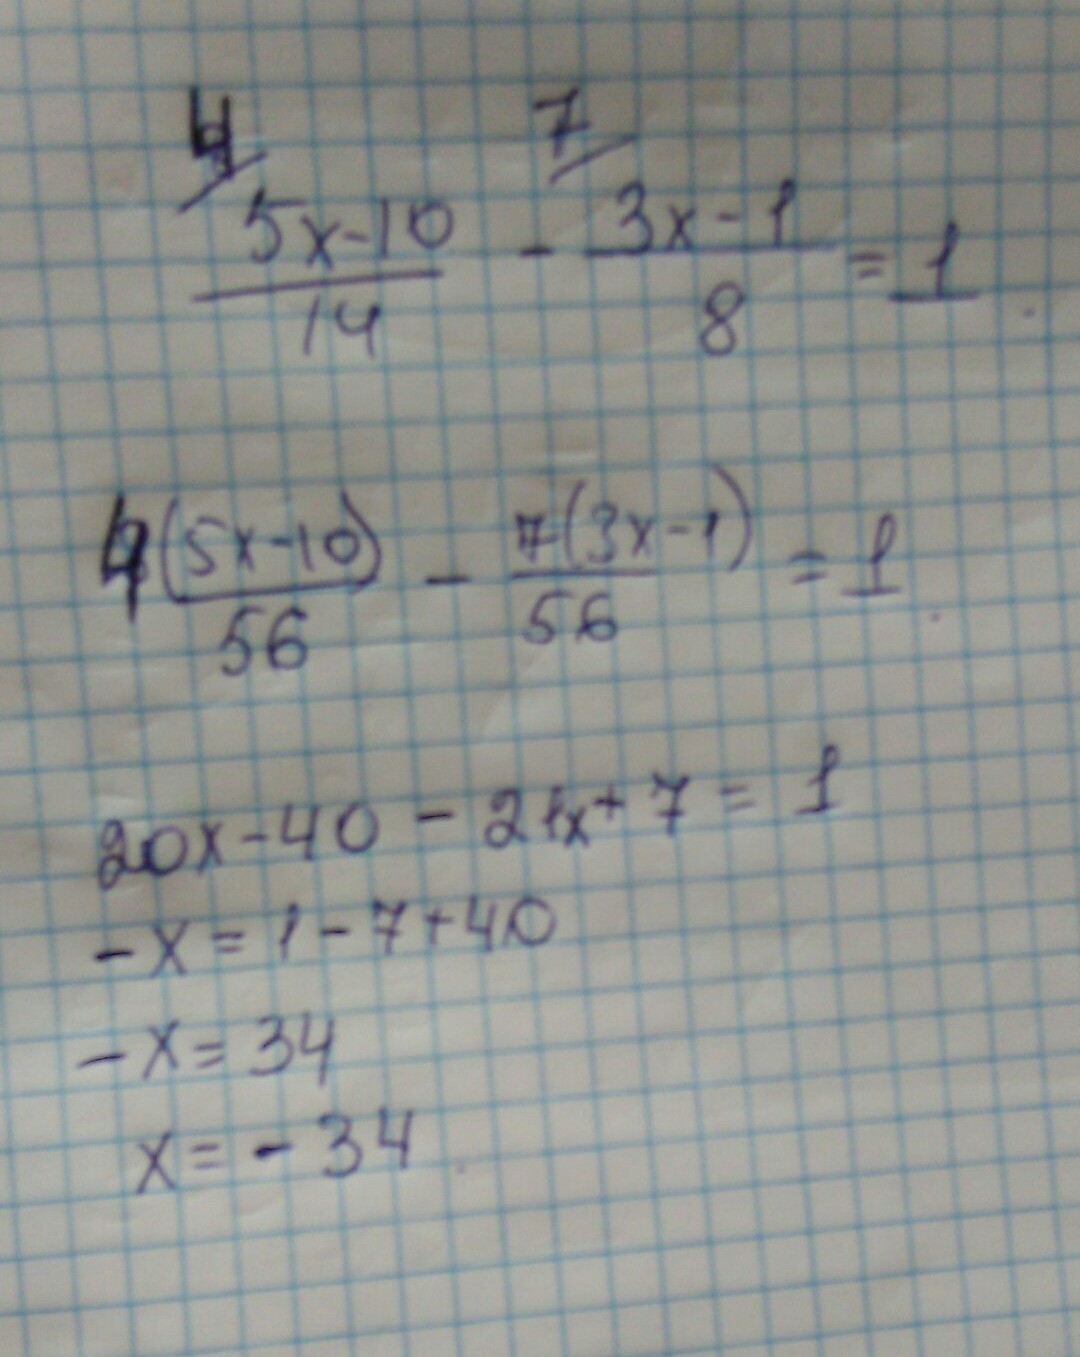 4 7
5x-10 - 3x-1 = 1
14 8
4(5x-10) - 7(3x-1) = 1
56 56
20x-40 - 21x+7 = 1
-x = 1-7+40
-x = 34
x = -34